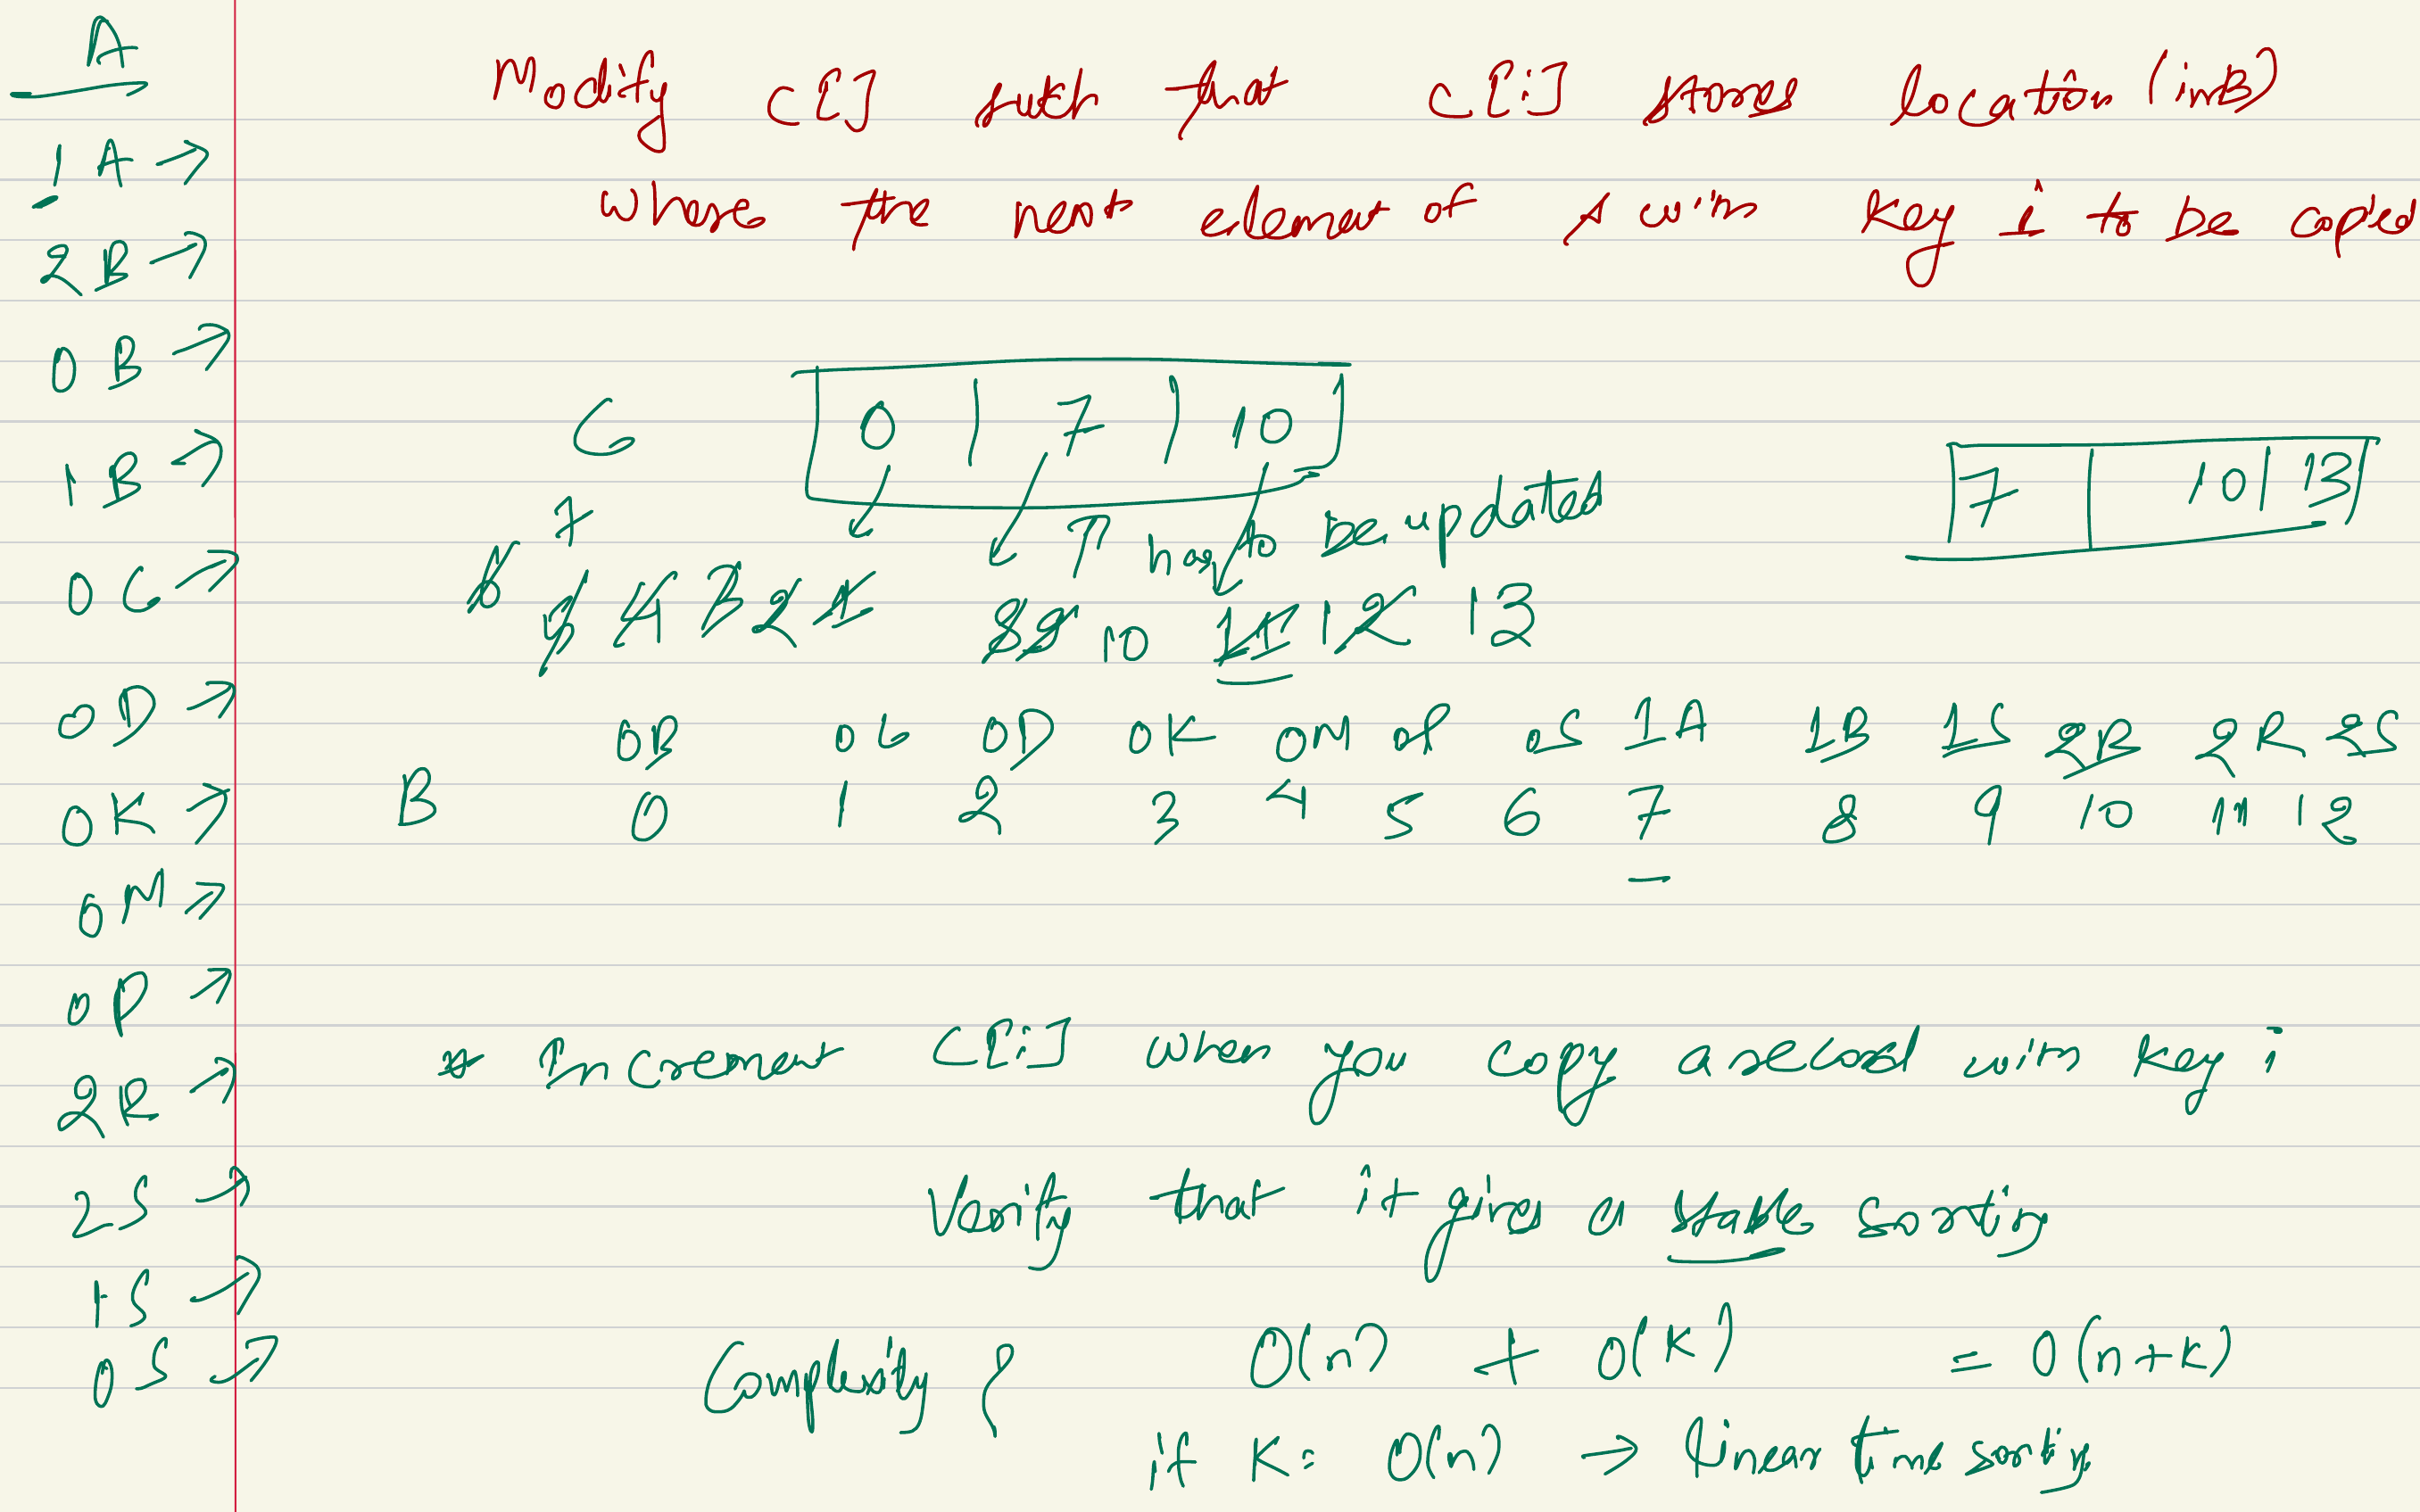 A
1 A →
2B →
0 B →
1 B →
0 C →
0 D →
0 K →
0 M →
0 P →
2R →
2S →
1S →
0S →
Modify C[i] such that C[i] stores location (in B)
where the next element of A with key i to be copied
C 0 | 7 | 10
has to be updated
7 | 10 | 13
7
6 5 4 3 2 1 8 9 10 11 12 13
0B 0C 0D 0K 0M 0P 0S 1A 1B 1S 2B 2R 2S
B 0 1 2 3 4 5 6 7 8 9 10 11 12
* Increment C[i] when you copy a record with key i
Verify that it gives a stable sorting
Complexity ? O(n) + O(K) = O(n+K)
if K = O(n) → linear time sorting